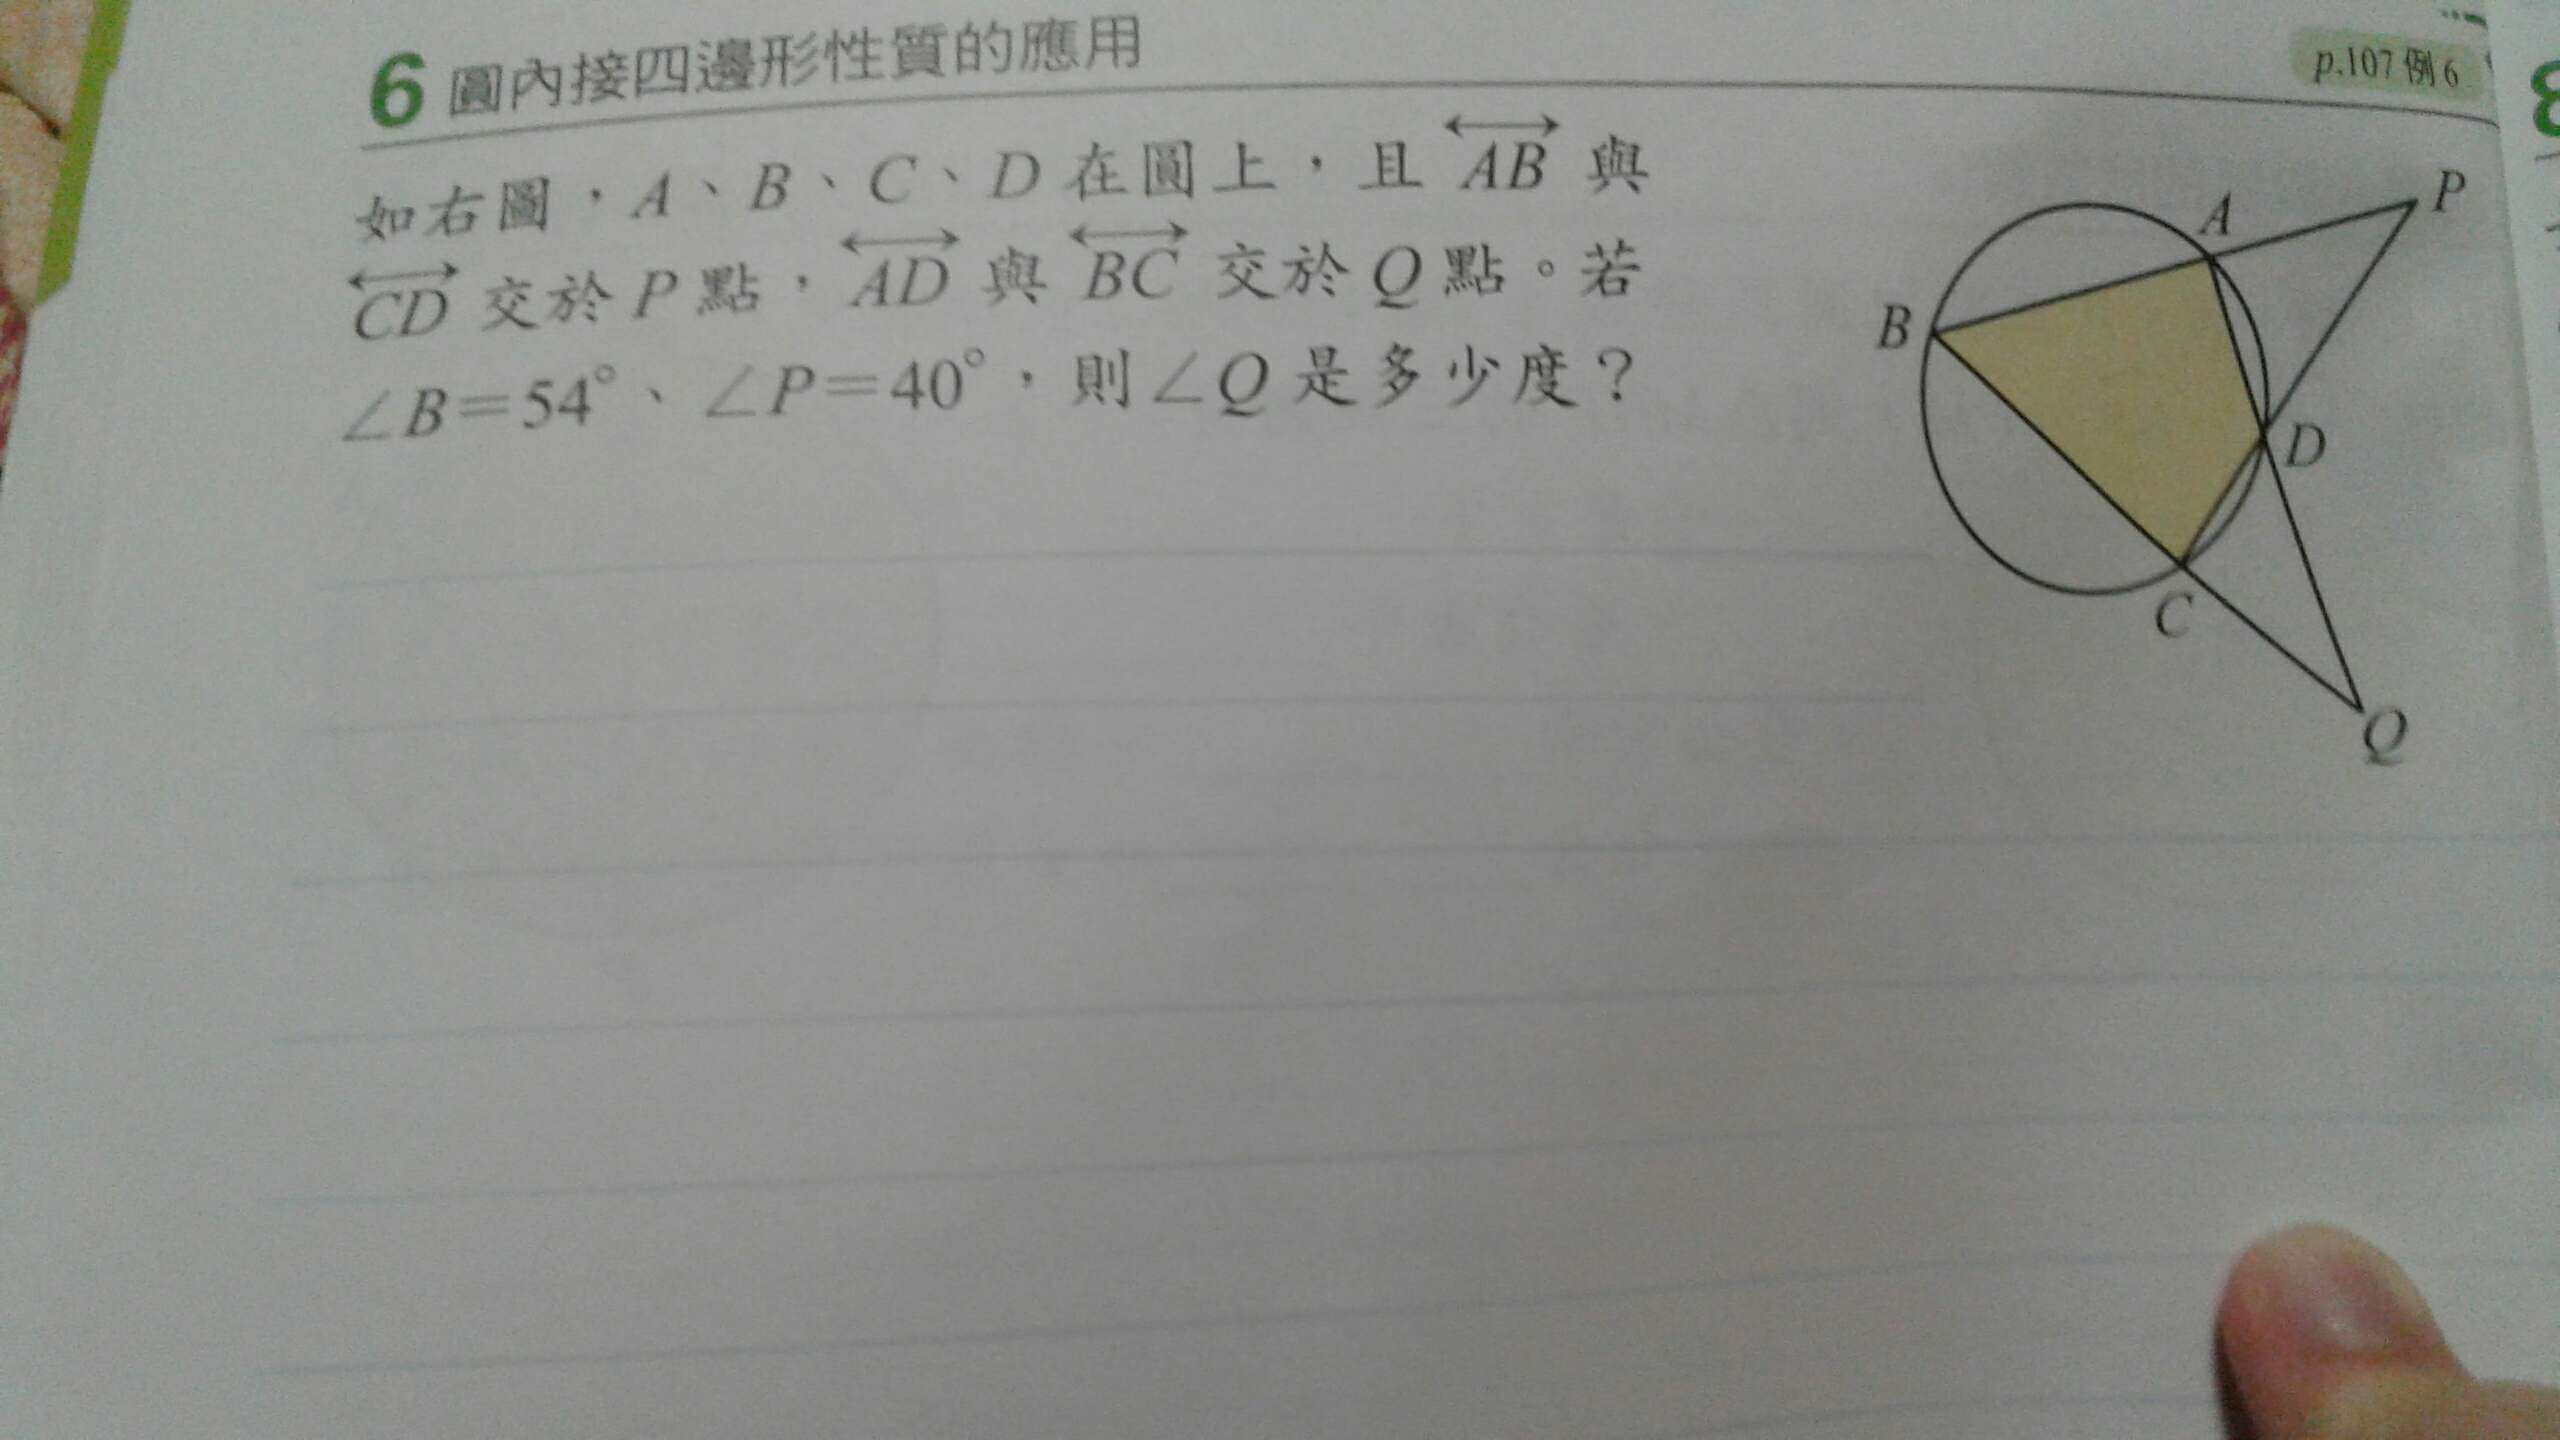 6 圓內接四邊形性質的應用
p.107 例 6
如右圖，A、B、C、D 在圓上，且 AB 與
CD 交於 P 點，AD 與 BC 交於 Q 點。若
∠B=54°、∠P=40°，則∠Q 是多少度？
P
A
B
D
C
Q